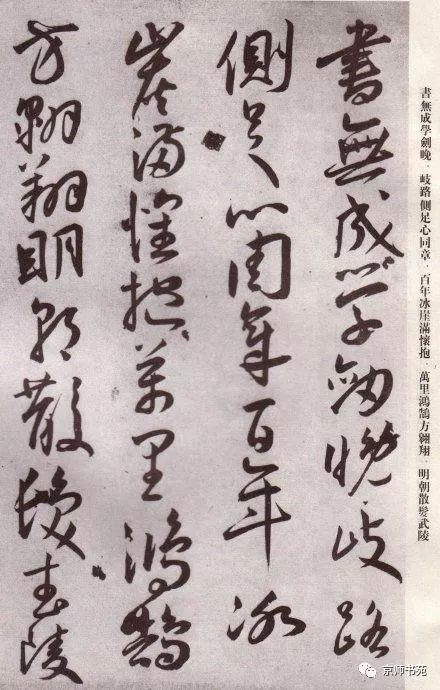 書無成學劍晚．岐路側足心同章．百年冰崖滿懷抱．萬里鴻鵠方翱翔．明朝散髮武陵
書無成學劍晚岐路
側足心周章百年冰
炭滿懷抱萬里鴻鵠
方翱翔明朝散髮武陵
京师书苑